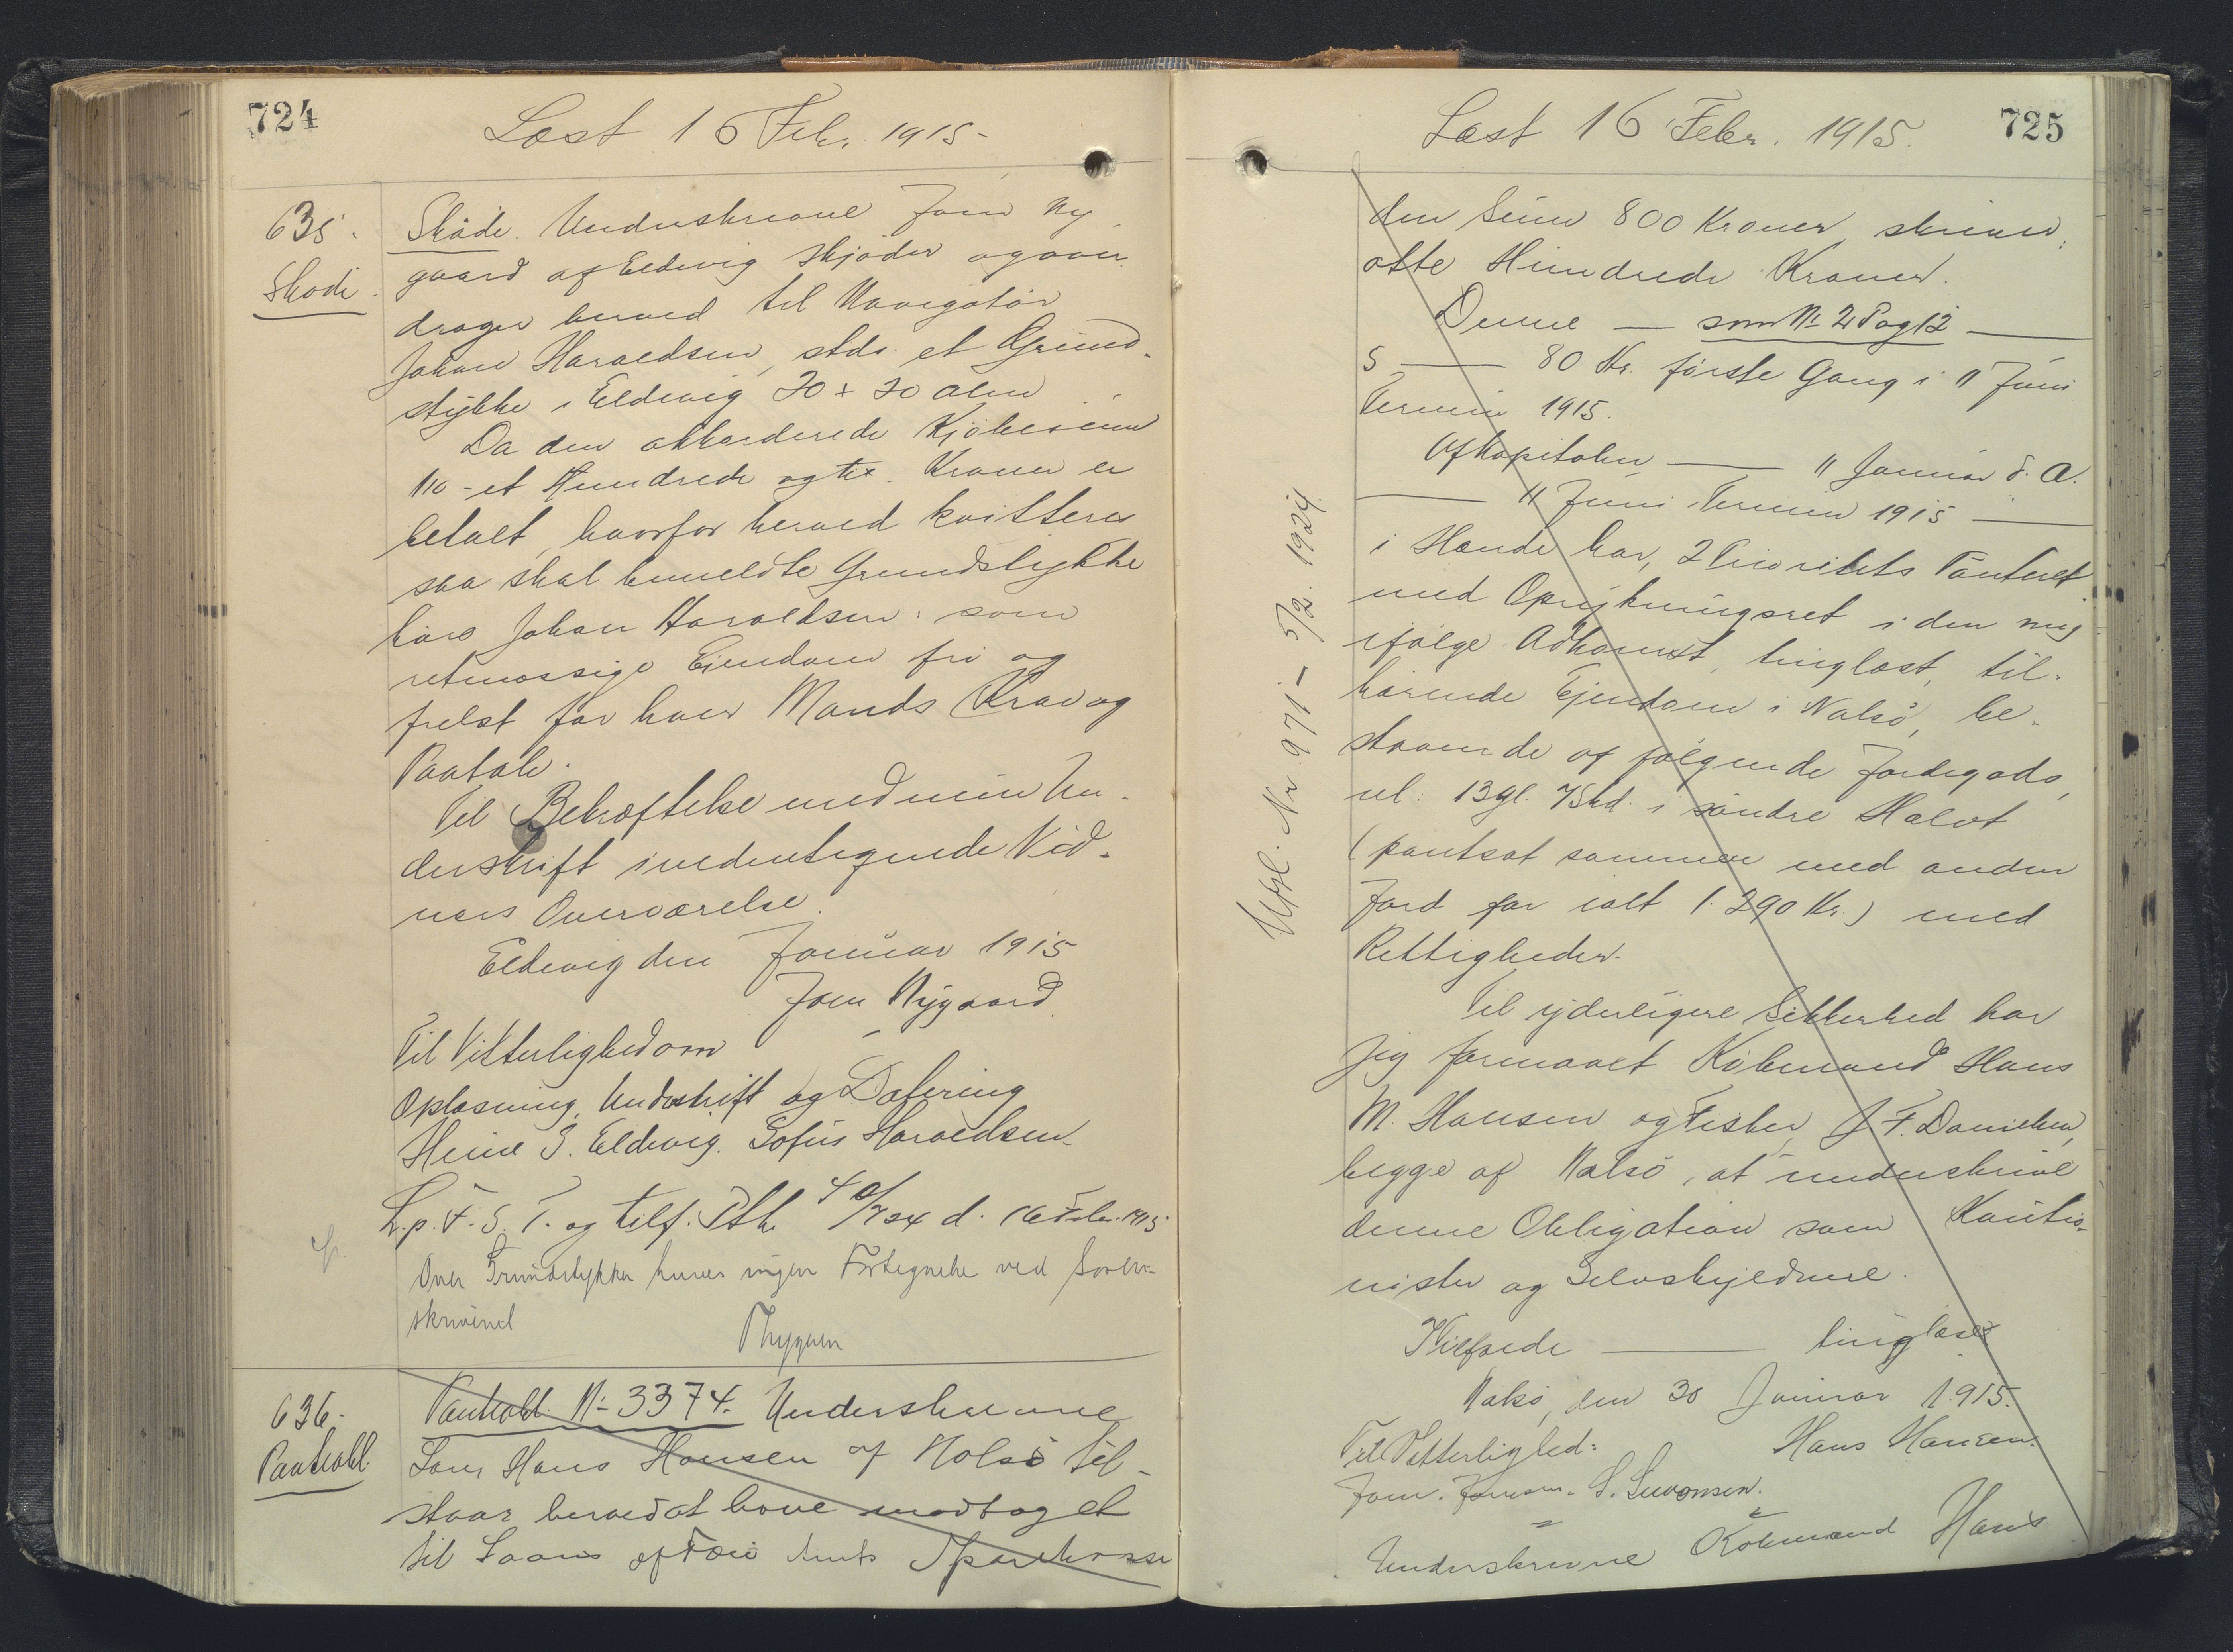 724
Læst 16 Febr. 1915-
635.
Skøde
Skøde. Underskrevne Joen Ny
gaard af Eldevig skjøder og over
drager herved til Navigatør
Johan Haraldsen, stds. et Grund-
stykke i Eldevig 20 x 20 Alen
Da den akkorderede Kjøbesum
110 - et Hundrede og ti - Kroner er
betalt, hvorfor herved kvitteres
saa skal bemeldte Grundstykke
høre Johan Haraldsen som
retmæssige Eiendom fri og
frelst for hver Mands Krav og
Paatale.
Til Bekræftelse med min Un-
derskrift i nedentegnede Vid-
ners Overværelse.
Eldevig den Januar 1915
Joen Nygaard
Til Vitterlighed om
Oplæsning, Underskrift og Datering
Heine J. Eldevig. Sofus Haraldsen
L. p. F. S. T. og tilf. Ptk. 40/724 d. 16 Febr. 1915
Over Grundstykker haves ingen Fortegnelse ved Soren-
skriveriet
636.
Panteobl.
Pantobl. No 3374. Underskrevne
Hans Hansen af Nolsø til-
staar herved at have modtaget
til Laans af Færø Amts Sparekasse
725
Læst 16 Febr. 1915.
den Sum 800 Kroner, skriver
otte Hundrede Kroner.
Denne — som No 2 Pag 12 —
5 — 80 Kr. første Gang i 11 Juni
Termin 1915.
Af Kapitalen — 11 Januar d. A.
— 11 Juni Termin 1915 —
i Hænde har, 2 Prioritets Panteret
med Oprykningsret i den mig
ifølge Adkomst, tinglæst, til-
hørende Ejendom i Nolsø, be-
staaende af følgende Jordegods,
nl: 13 gl. 7 Skd. i søndre Halvt
(pantsat sammen med anden
Jord for ialt 1.290 Kr.) med
Rettigheder.
Til yderligere Sikkerhed har
jeg formaaet Købmand Hans
M. Hansen og Fisker J. F. Danielsen,
begge af Nolsø, at underskrive
denne Obligation som Kautio-
nister og Selvskyldnere.
I Tilfælde — tinglæses
Nolsø, den 30 Januar 1915.
Til Vitterlighed: Hans Hansen.
S. Simonsen.
Underskrevne Købmand Hans
Udsl. Nr 971 - 5/2. 1924.